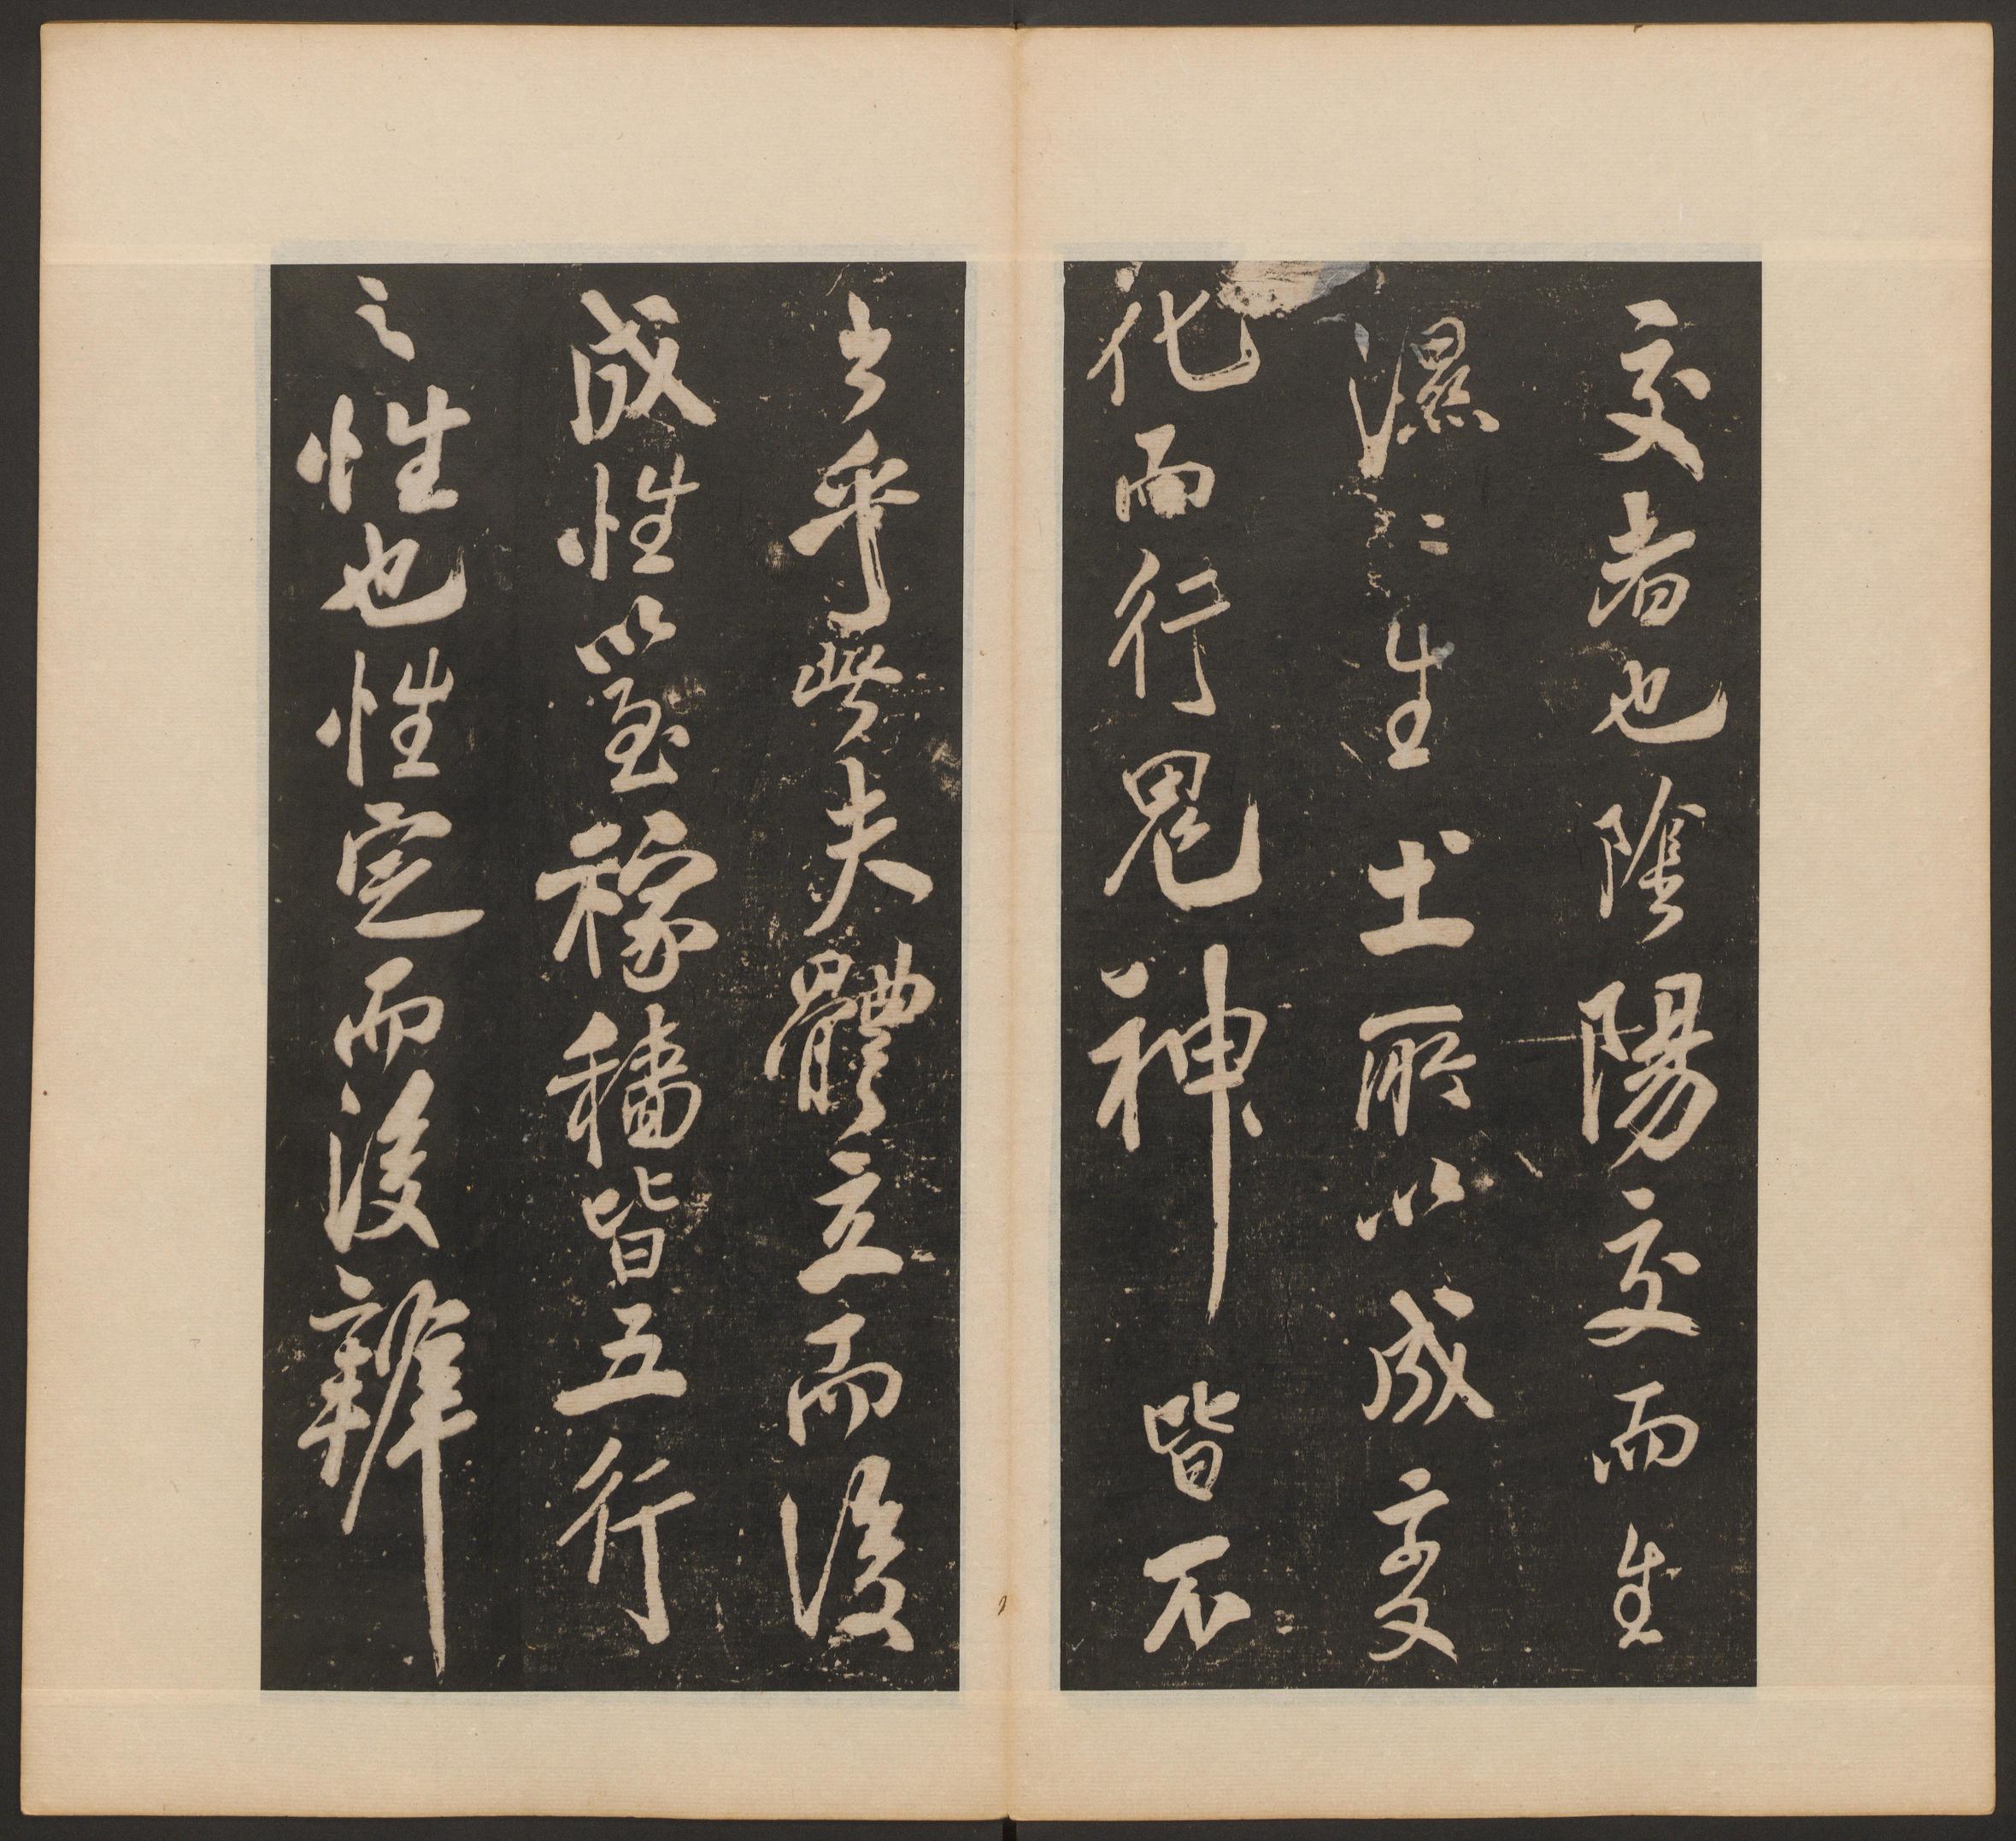 交者也陰陽交而生
濕〻生土所以成變
化而行鬼神皆不
出乎此夫體立而後
成性以至稼穡皆五行
之性也性定而後辨